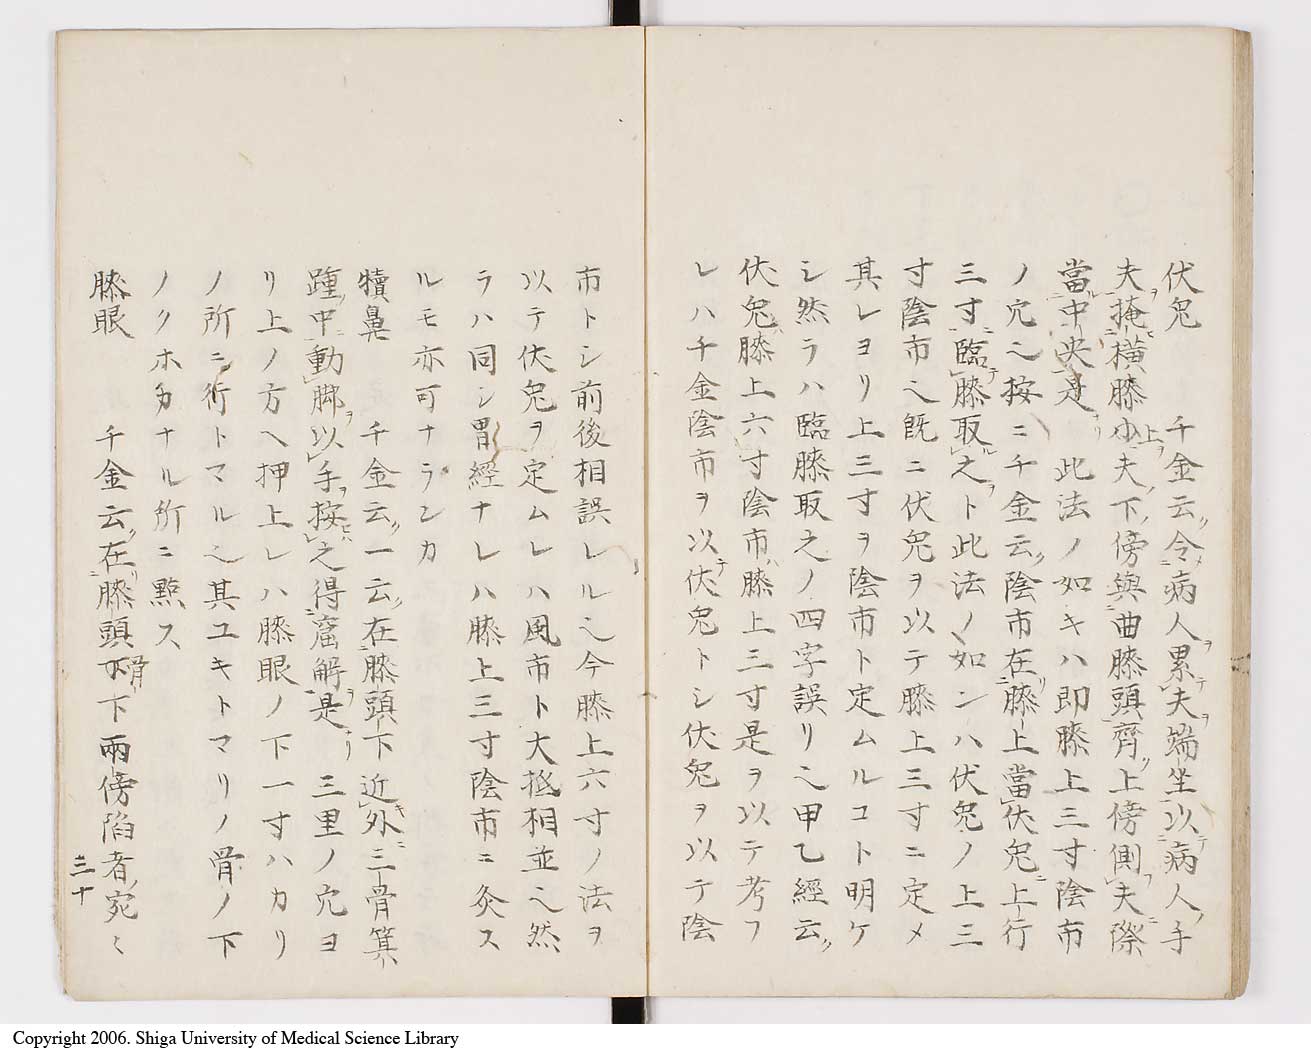 伏兔　　千金云令病人累夫端坐以病人手
夫掩横膝上夫下傍與曲膝頭齊上傍側夫際
當中央是　此法ノ如キハ即膝上三寸陰市
ノ穴也按ニ千金云陰市在膝上當伏兔上行
三寸臨膝取之ト此法ノ如ンハ伏兔ノ上三
寸陰市也既ニ伏兔ヲ以テ膝上三寸ニ定メ
其レヨリ上三寸ヲ陰市ト定ムルコト明ケ
シ然ラハ臨膝取之ノ四字誤リ也甲乙經云
伏兔膝上六寸陰市膝上三寸是ヲ以テ考フ
レハ千金陰市ヲ以伏兔トシ伏兔ヲ以テ陰
市トシ前後相誤レル也今膝上六寸ノ法ヲ
以テ伏兔ヲ定ムレハ風市ト大抵相並也然
ラハ同シ胃經ナレハ膝上三寸陰市ニ灸ス
ルモ亦可ナランカ
犢鼻　　千金云一云在膝頭下近外三骨箕
踵中動脚以手按之得窟解是　三里ノ穴ヨ
リ上ノ方ヘ押上レハ膝眼ノ下一寸ハカリ
ノ所ニ行トマル也其ユキトマリノ骨ノ下
ノクホカナル所ニ點ス
膝眼　　千金云在膝頭骨下兩傍陷者宛々
三十
Copyright 2006. Shiga University of Medical Science Library